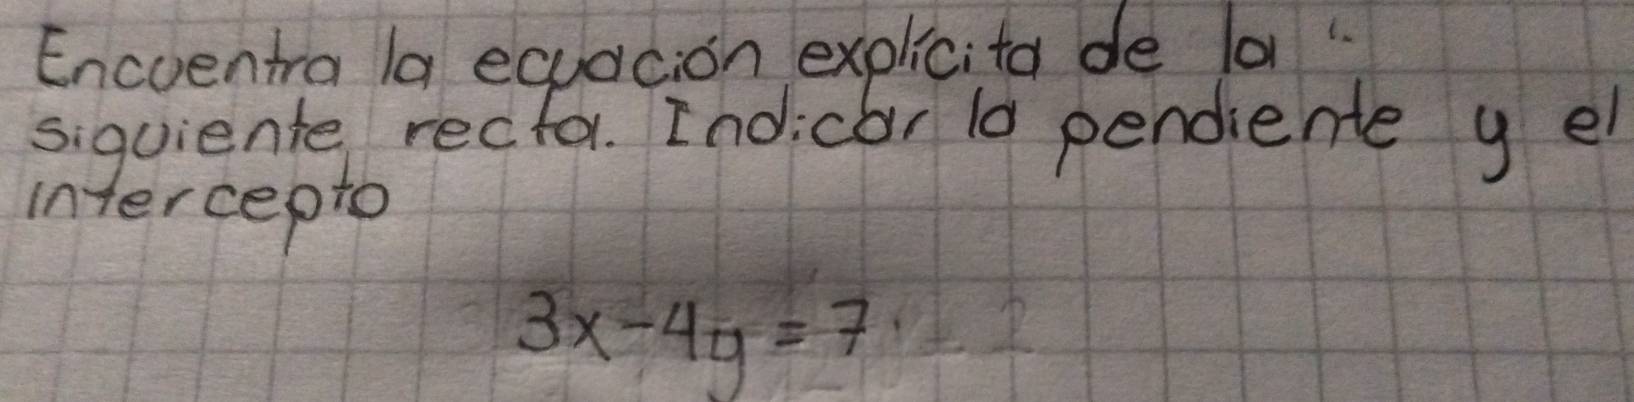 Encuentra la ecuación explícita de la
siguiente recta. Indicar la pendiente y el
intercepto
3x-4y=7